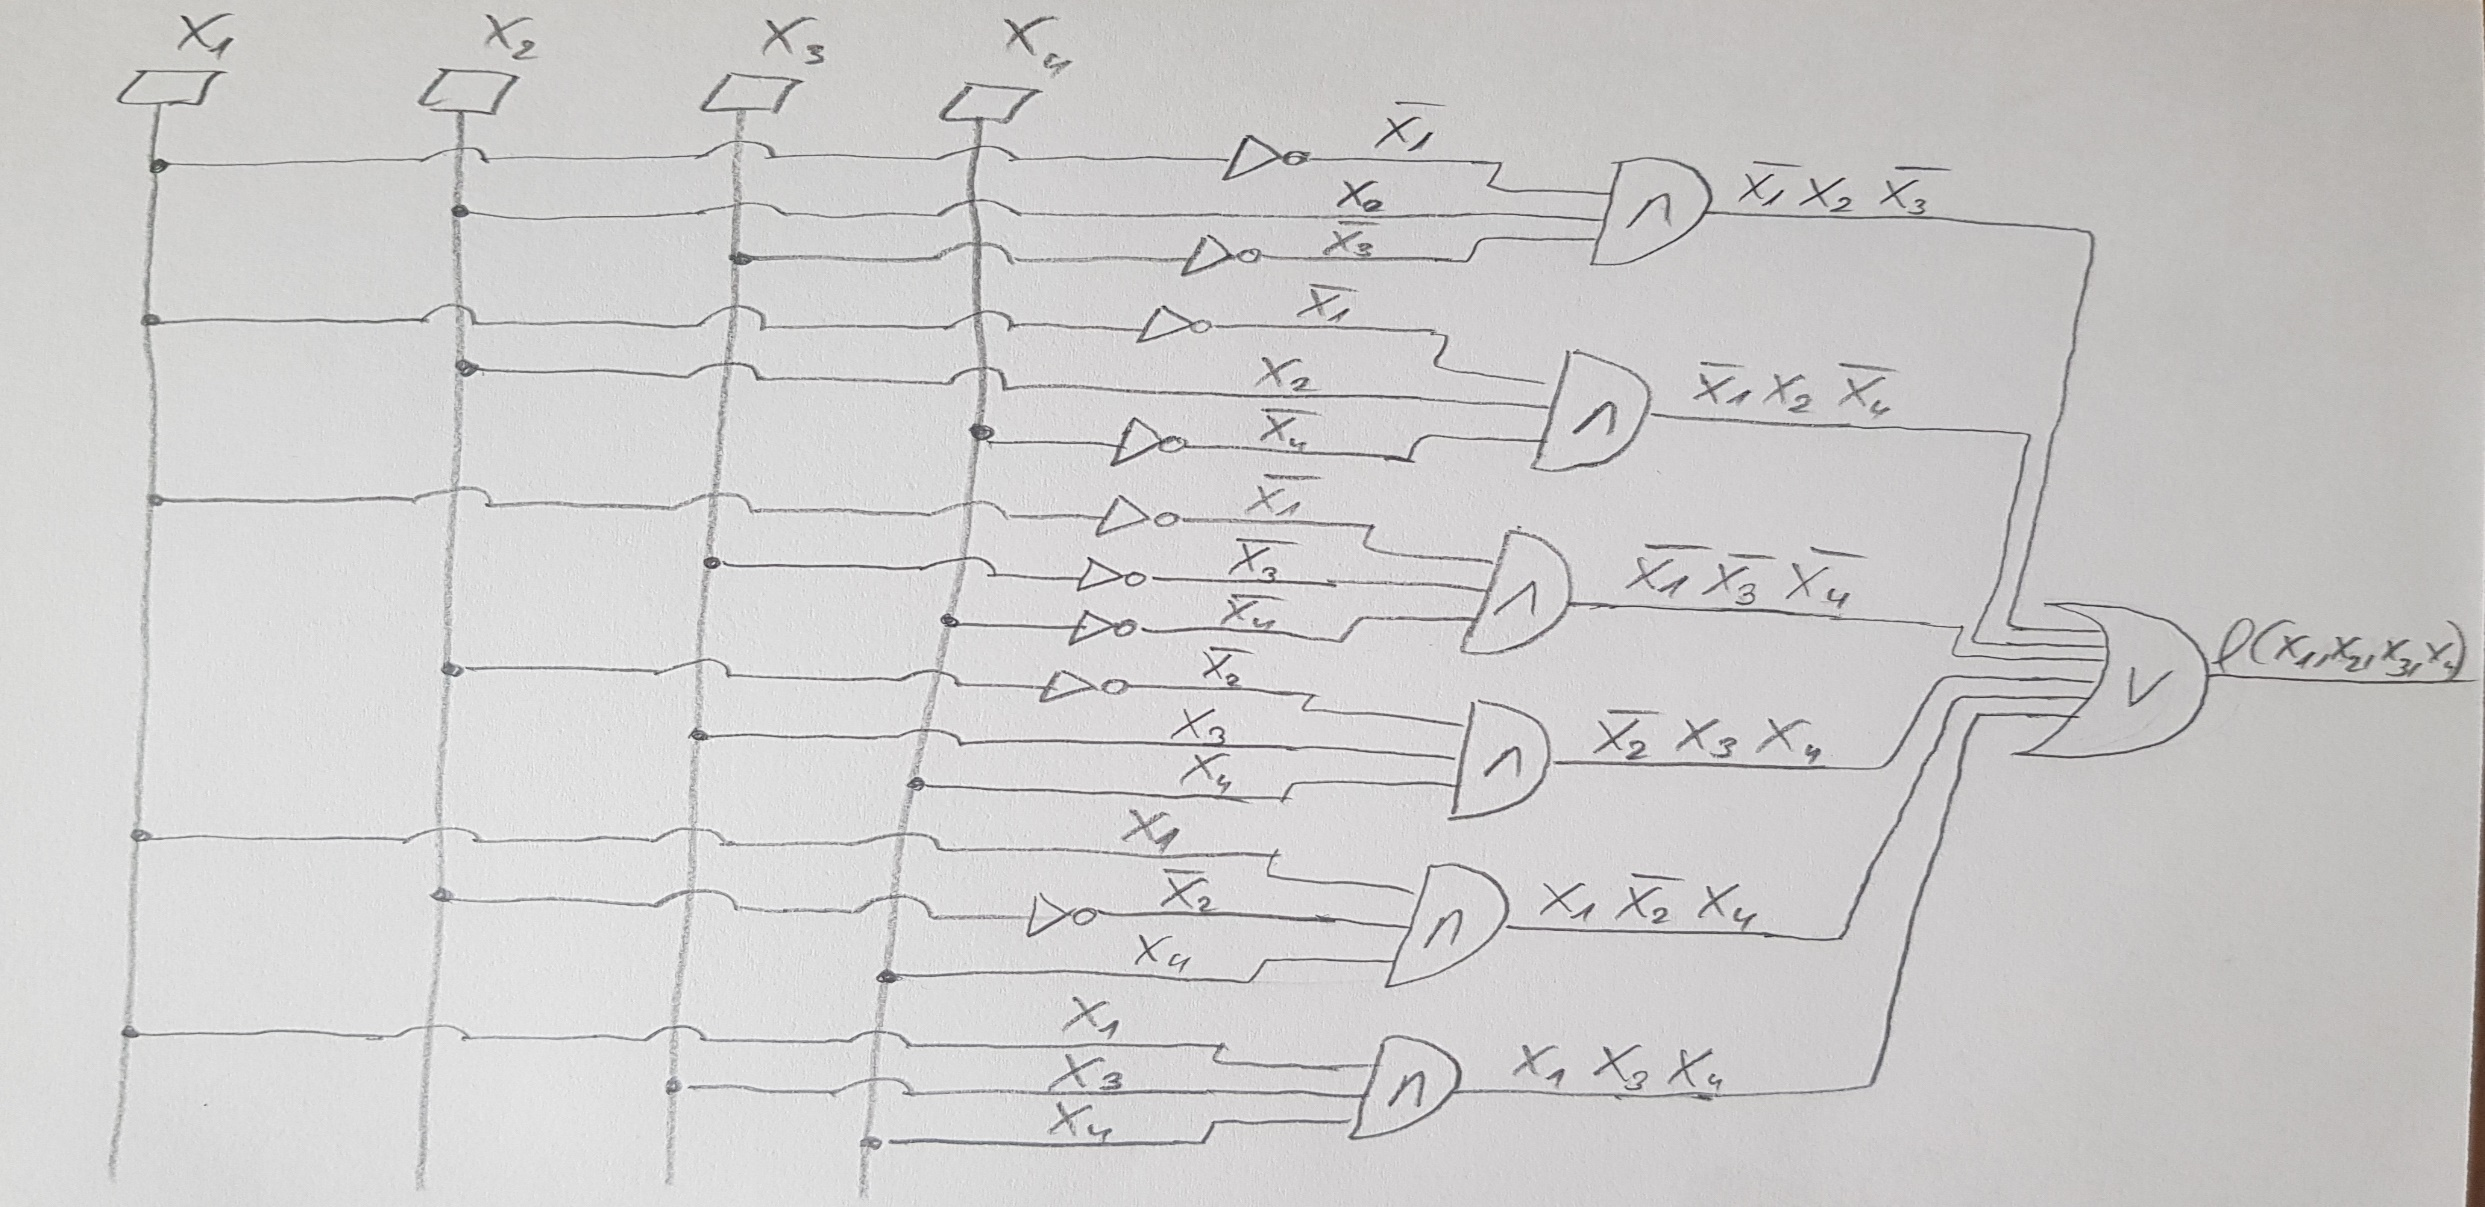 X₁ X₂ X₃ X₄
X̅₁
X₂
X̅₃
∧
X̅₁ X₂ X̅₃
X̅₁
X₂
X̅₄
∧
X̅₁ X₂ X̅₄
X̅₁
X̅₃
X̅₄
∧
X̅₁ X̅₃ X̅₄
X̅₂
X₃
X₄
∧
X̅₂ X₃ X₄
X₁
X̅₂
X₄
∧
X₁ X̅₂ X₄
X₁
X₃
X₄
∧
X₁ X₃ X₄
∨
f(X₁,X₂,X₃,X₄)